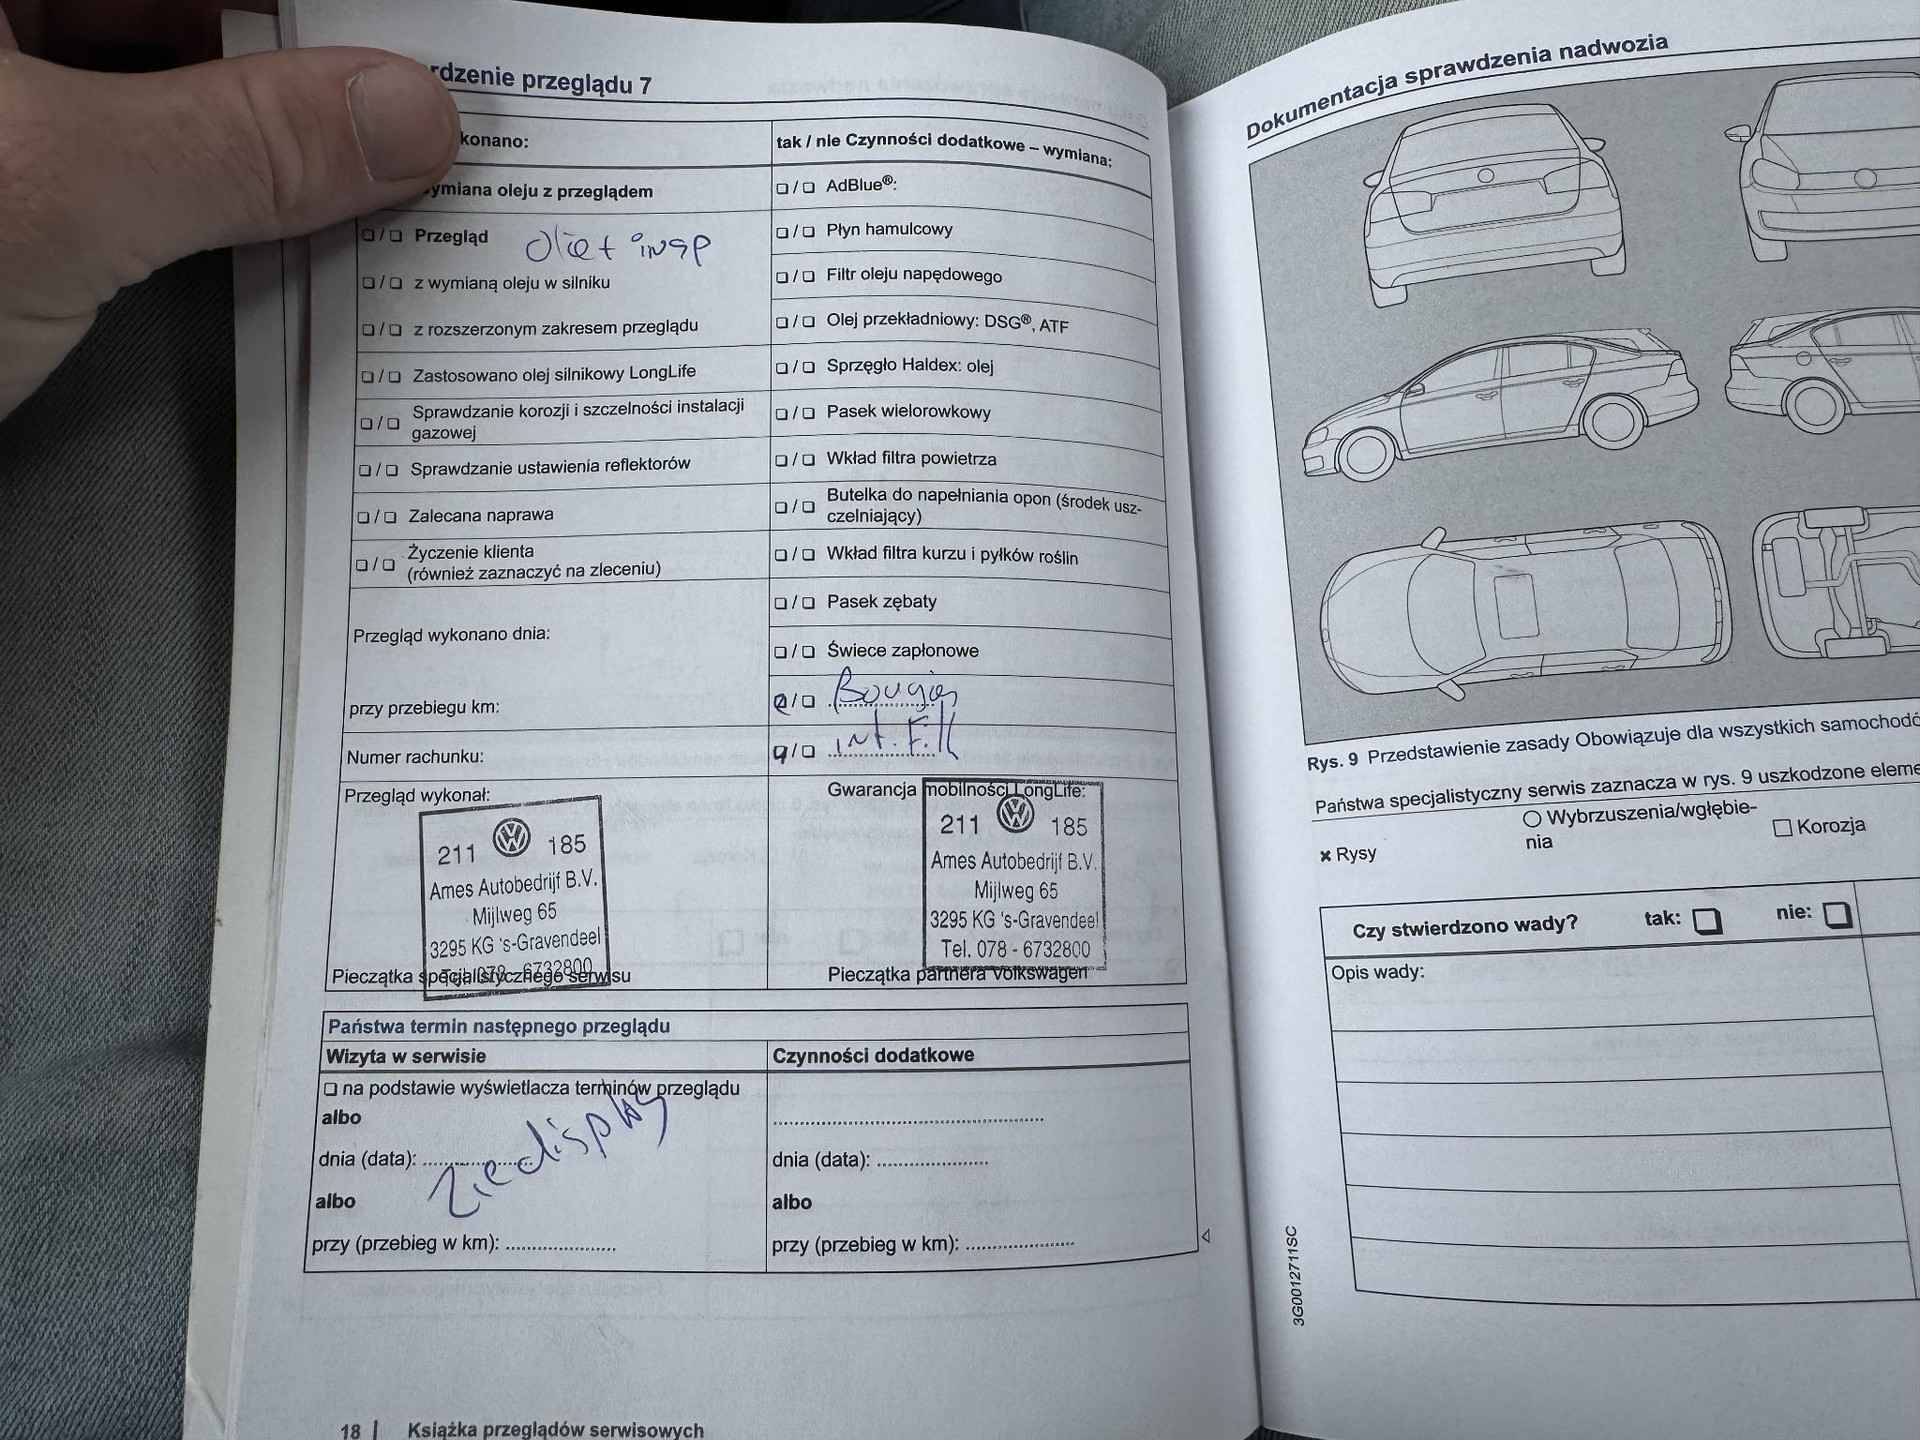 rdzenie przeglądu 7
konano:
ymiana oleju z przeglądem
❏ / ❏ Przegląd
insp
❏ / ❏ z wymianą oleju w silniku
❏ / ❏ z rozszerzonym zakresem przeglądu
❏ / ❏ Zastosowano olej silnikowy LongLife
❏ / ❏ Sprawdzanie korozji i szczelności instalacji
gazowej
❏ / ❏ Sprawdzanie ustawienia reflektorów
❏ / ❏ Zalecana naprawa
❏ / ❏ Życzenie klienta
(również zaznaczyć na zleceniu)
Przegląd wykonano dnia:
przy przebiegu km:
Numer rachunku:
Przegląd wykonał:
211 185
Ames Autobedrijf B.V.
Mijlweg 65
3295 KG 's-Gravendeel
Tel. 078 - 6732800
Pieczątka specjalistycznego serwisu
tak / nie Czynności dodatkowe – wymiana:
❏ / ❏ AdBlue®:
❏ / ❏ Płyn hamulcowy
❏ / ❏ Filtr oleju napędowego
❏ / ❏ Olej przekładniowy: DSG®, ATF
❏ / ❏ Sprzęgło Haldex: olej
❏ / ❏ Pasek wielorowkowy
❏ / ❏ Wkład filtra powietrza
❏ / ❏ Butelka do napełniania opon (środek usz-
czelniający)
❏ / ❏ Wkład filtra kurzu i pyłków roślin
❏ / ❏ Pasek zębaty
❏ / ❏ Świece zapłonowe
❏ / ❏ Bougies
❏ / ❏ int. Filt
Gwarancja mobilności LongLife:
211 185
Ames Autobedrijf B.V.
Mijlweg 65
3295 KG 's-Gravendeel
Tel. 078 - 6732800
Pieczątka partnera Volkswagen
Państwa termin następnego przeglądu
Wizyta w serwisie
❏ na podstawie wyświetlacza terminów przeglądu
albo
dnia (data): ....................
Zie display
albo
przy (przebieg w km): ....................
Czynności dodatkowe
..................................................
dnia (data): ....................
albo
przy (przebieg w km): ....................
18 | Książka przeglądów serwisowych
Dokumentacja sprawdzenia nadwozia
Rys. 9 Przedstawienie zasady Obowiązuje dla wszystkich samochodó
Państwa specjalistyczny serwis zaznacza w rys. 9 uszkodzone eleme
× Rysy
○ Wybrzuszenia/wgłębie-
nia
□ Korozja
Czy stwierdzono wady? tak: ❏ nie: ❏
Opis wady:
3G0012711SC